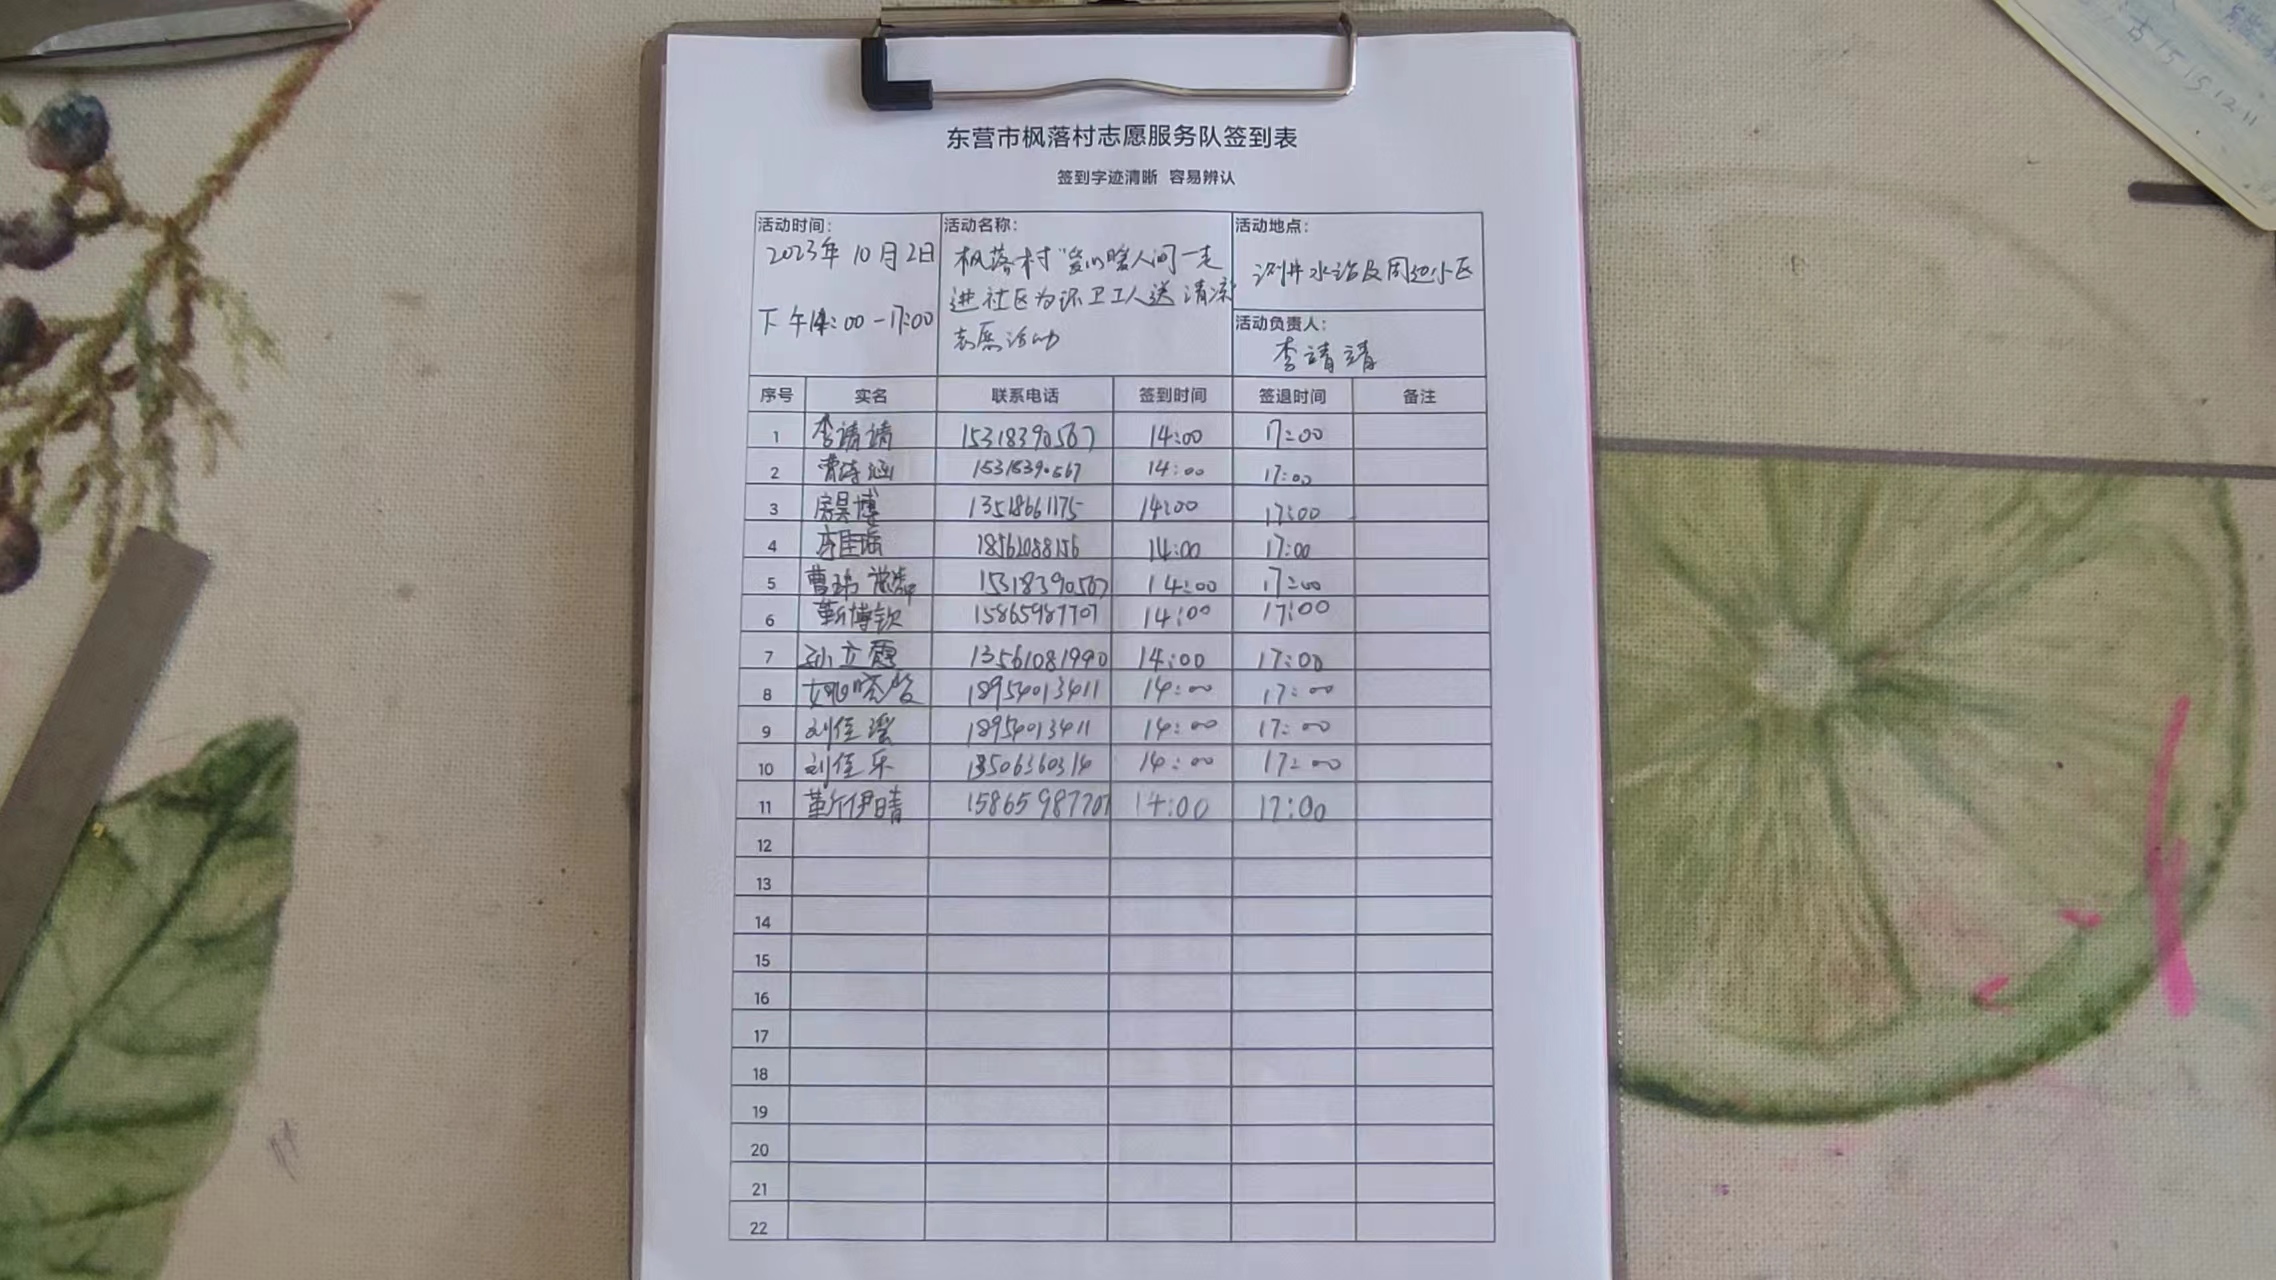 东营市枫落村志愿服务队签到表
签到字迹清晰 容易辨认
活动时间: 活动名称: 活动地点:
2023年10月2日
下午14:00-17:00
枫落村“爱心暖人间—走
进社区为环卫工人送清凉
志愿活动
水站及周边小区
活动负责人:
李靖靖
序号 实名 联系电话 签到时间 签退时间 备注
1 李靖靖 15318390567 14:00 17:00
2 曹诗涵 15318390567 14:00 17:00
3 房昊博 13518661175 14:00 17:00
4 佳瑶 18561088156 14:00 17:00
5 曹玮 15318390567 14:00 17:00
6 靳博钦 15865987707 14:00 17:00
7 孙立霞 13561081990 14:00 17:00
8 姚晓 18954013411 14:00 17:00
9 刘佳瑶 18954013411 14:00 17:00
10 刘佳乐 13506360314 14:00 17:00
11 靳伊晴 15865987707 14:00 17:00
12
13
14
15
16
17
18
19
20
21
22